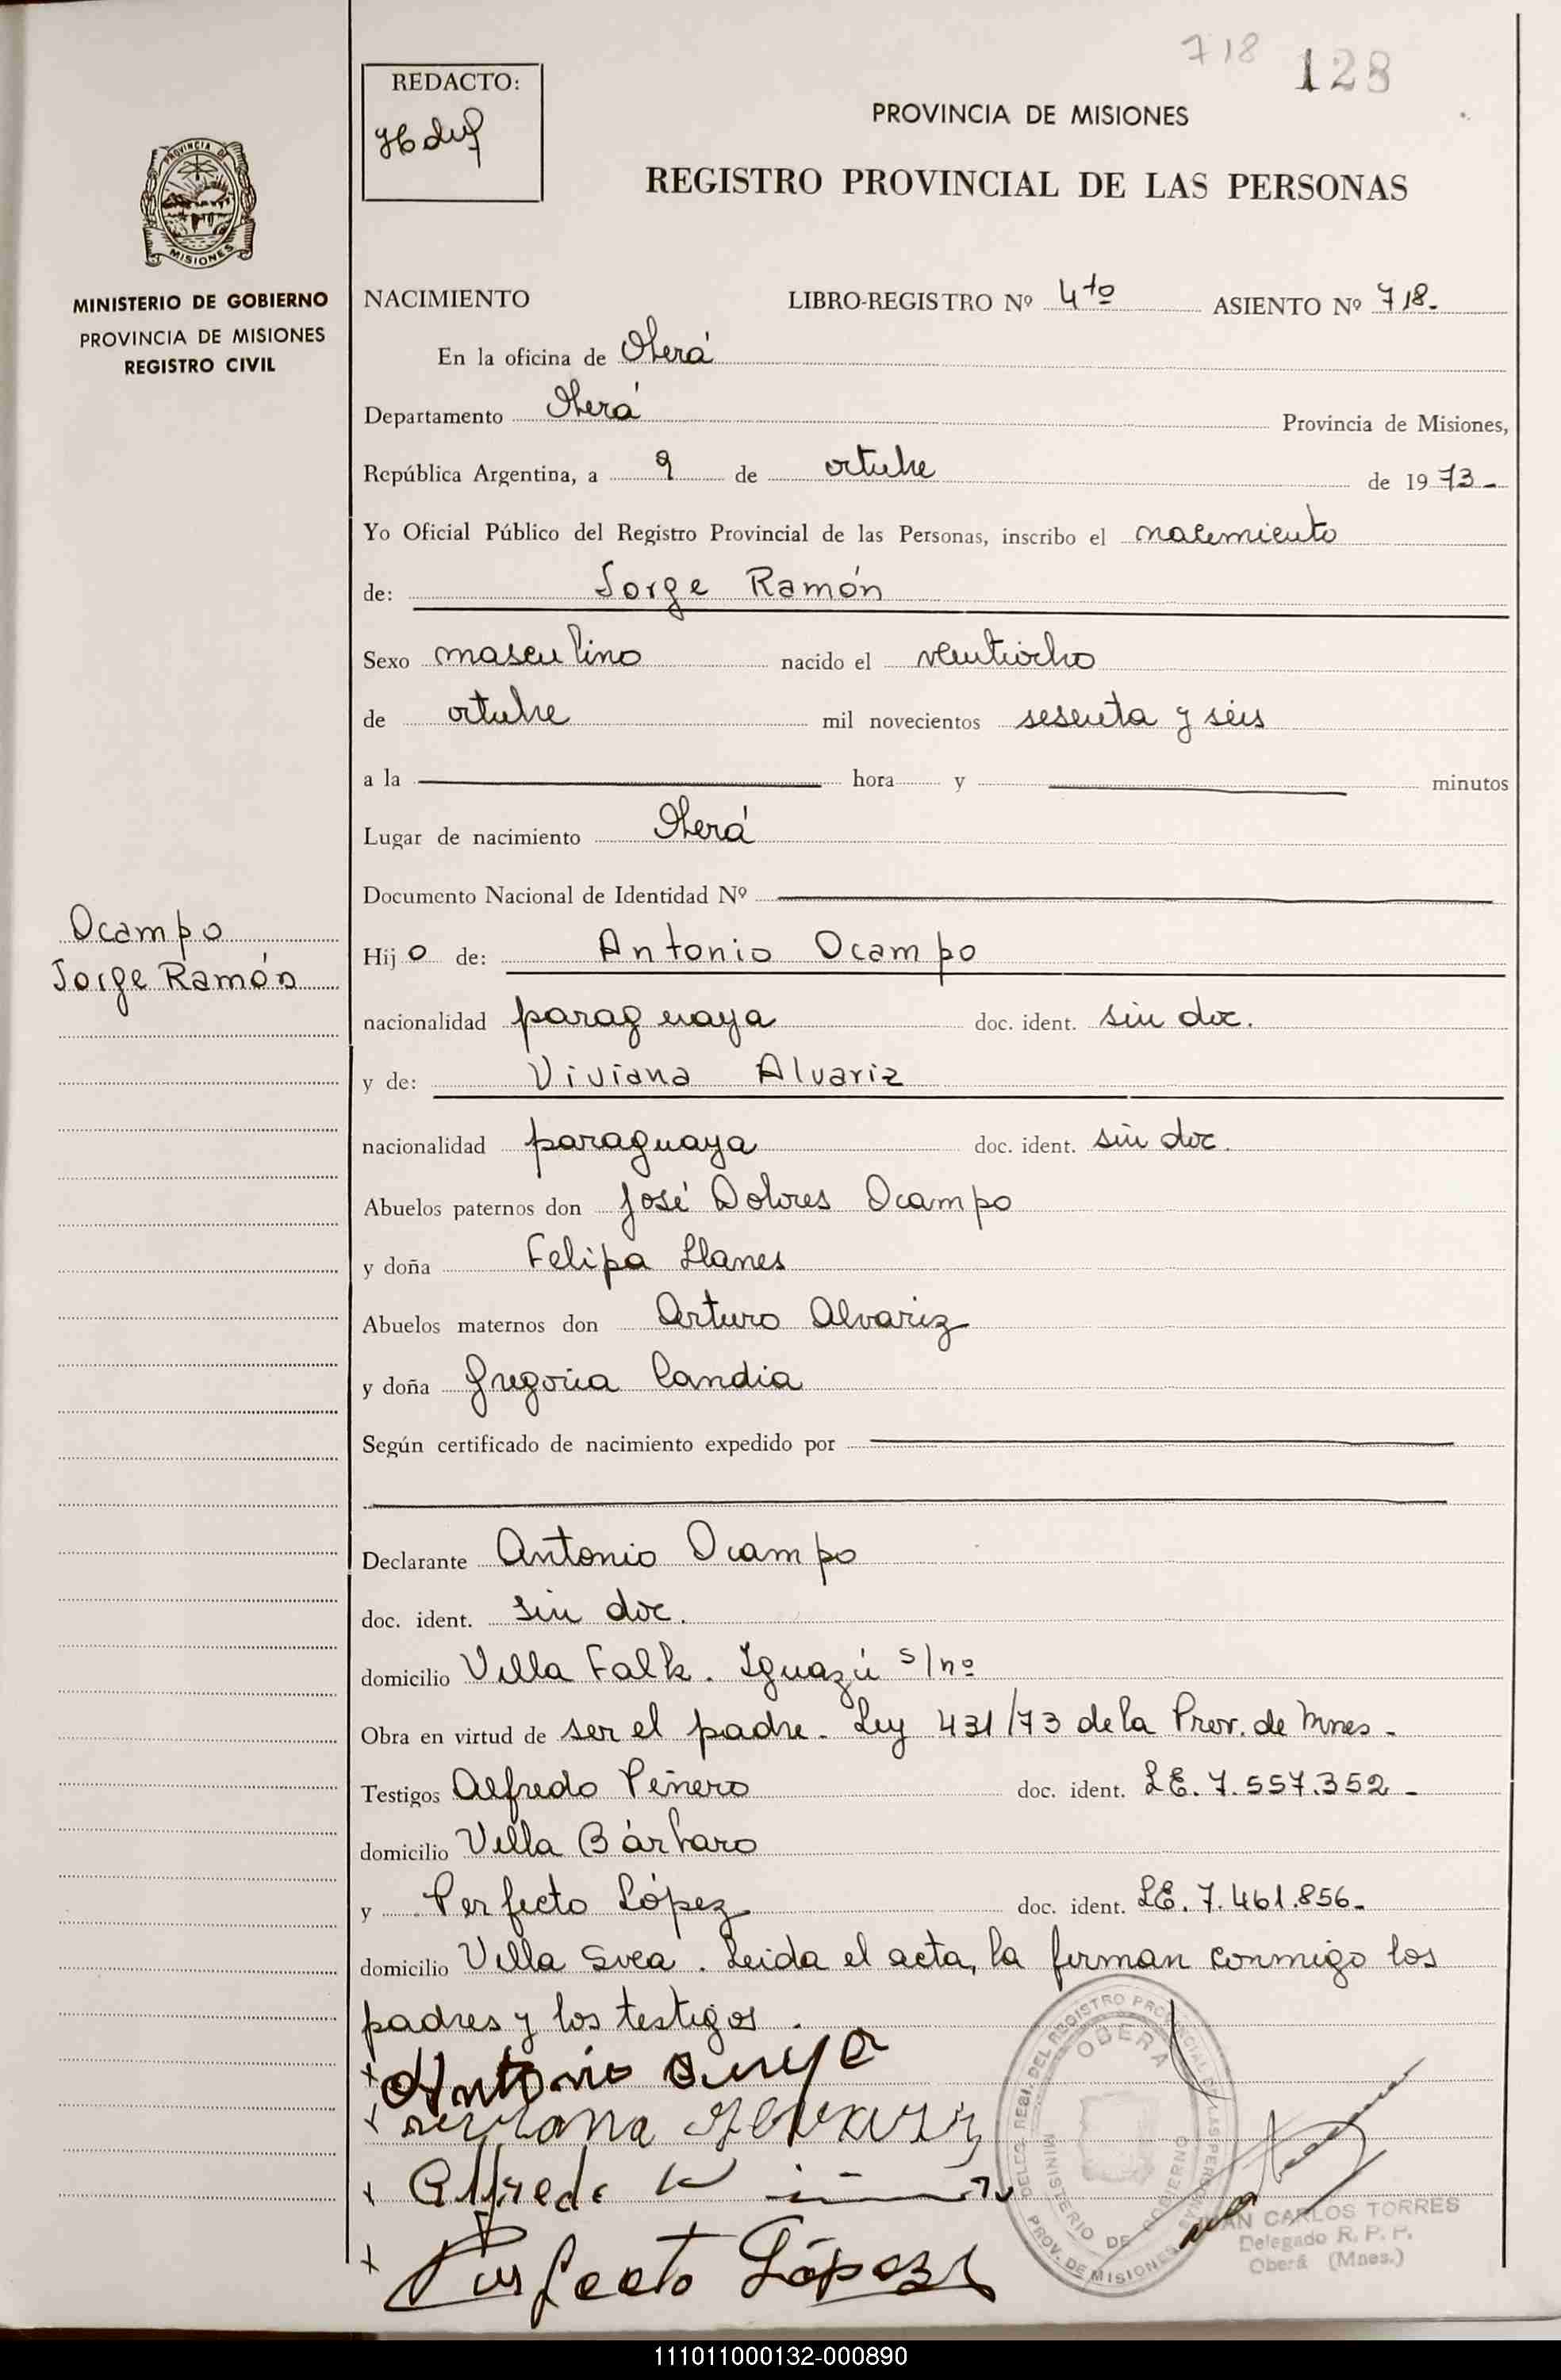 718 128
REDACTO:
PROVINCIA DE MISIONES
REGISTRO PROVINCIAL DE LAS PERSONAS
PROVINCIA DE
MISIONES
MINISTERIO DE GOBIERNO
PROVINCIA DE MISIONES
REGISTRO CIVIL
NACIMIENTO LIBRO-REGISTRO Nº 4to ASIENTO Nº 718-
En la oficina de Oberá
Departamento Oberá Provincia de Misiones,
República Argentina, a 9 de octubre de 1973-
Yo Oficial Público del Registro Provincial de las Personas, inscribo el nacimiento
de: Jorge Ramón
Sexo masculino nacido el veintiocho
de octubre mil novecientos sesenta y séis
a la hora y minutos
Lugar de nacimiento Oberá
Documento Nacional de Identidad Nº
Ocampo
Jorge Ramón
Hijo de: Antonio Ocampo
nacionalidad paraguaya doc. ident. sin doc.
y de: Viviana Alvariz
nacionalidad paraguaya doc. ident. sin doc.
Abuelos paternos don José Dolores Ocampo
y doña Felipa Llanes
Abuelos maternos don Arturo Alvariz
y doña Gregoria Candia
Según certificado de nacimiento expedido por
Declarante Antonio Ocampo
doc. ident. sin doc.
domicilio Villa Falk. Iguazú s/nº
Obra en virtud de ser el padre- Ley 431/73 de la Prov. de Mnes-
Testigos Alfredo Piñero doc. ident. LE. 7.557.352-
domicilio Villa Bárbaro
y Perfecto López doc. ident. LE. 7.461.856-
domicilio Villa Svea. Leida el acta, la firman conmigo los
padres y los testigos.
Antonio
Alfredo
Perfecto López
OBERA
MINISTERIO DE GOBIERNO
PROV. DE MISIONES
JUAN CARLOS TORRES
Delegado R. P. P.
Oberá (Mnes.)
111011000132-000890